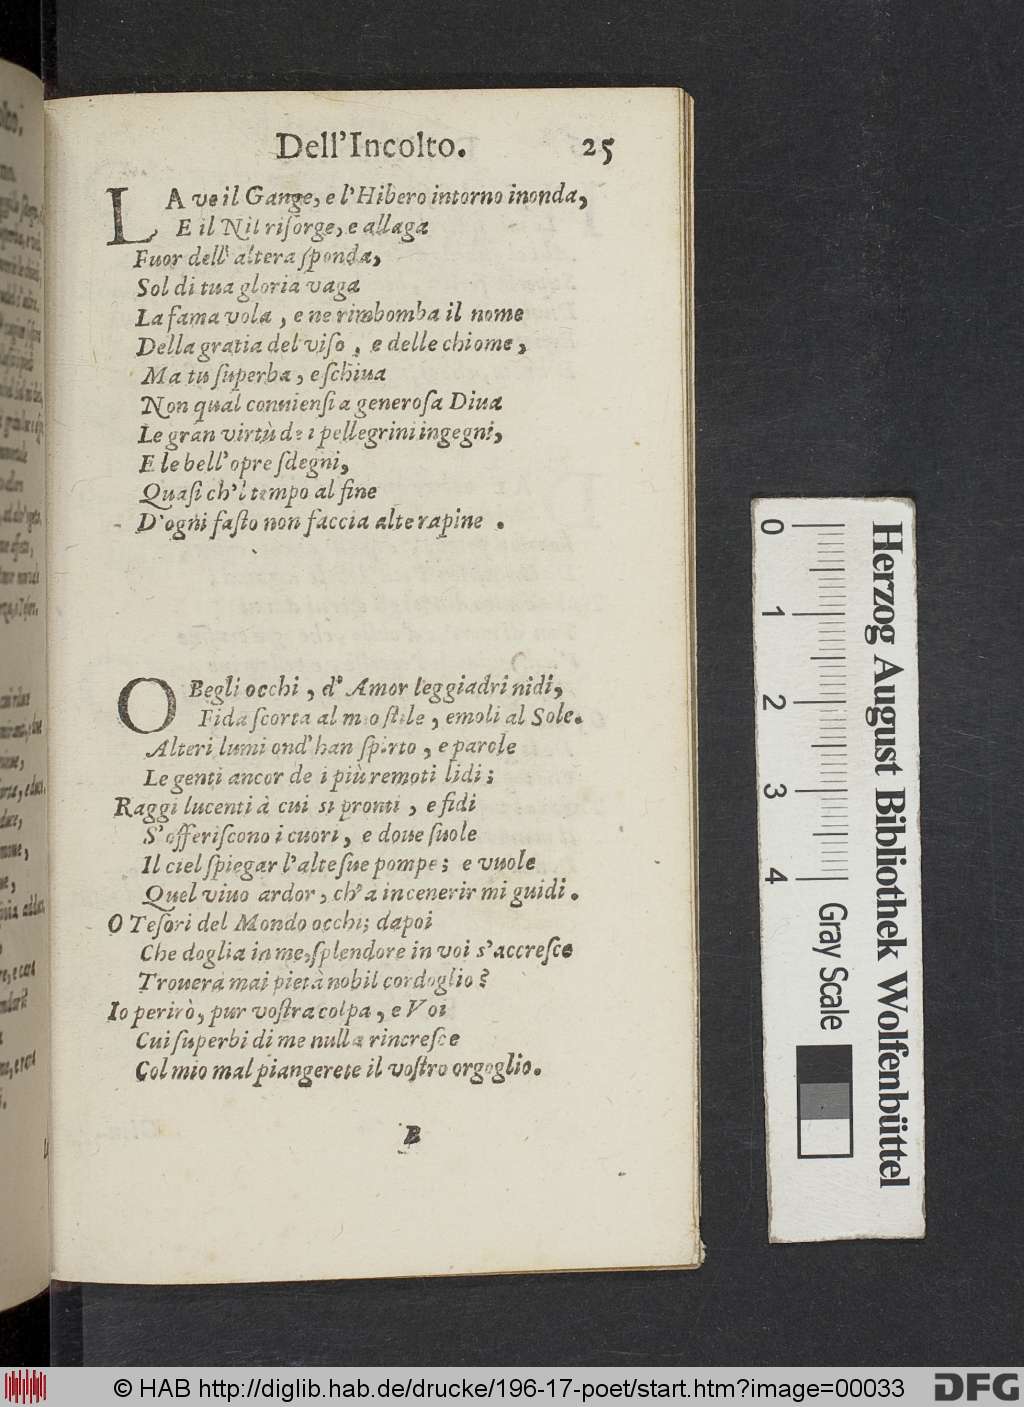 Dell'Incolto. 25
LA ve il Gange, e l'Hibero intorno inonda,
E il Nil riſorge, e allaga
Fuor dell' altera ſponda,
Sol di tua gloria vaga
La fama vola , e ne rimbomba il nome
Della gratia del viſo , e delle chiome ,
Ma tu ſuperba , e ſchiua
Non qual conuienſi a generoſa Diua
Le gran virtù de i pellegrini ingegni,
E le bell' opre ſdegni,
Quaſi ch'l tempo al fine
D'ogni faſto non faccia alte rapine .
O Begli occhi , d' Amor leggiadri nidi,
Fida ſcorta al mio ſtile , emoli al Sole.
Alteri lumi ond' han ſpirto , e parole
Le genti ancor de i più remoti lidi ;
Raggi lucenti à cui si pronti , e fidi
S'offeriſcono i cuori , e doue ſuole
Il ciel ſpiegar l'alte ſue pompe ; e vuole
Quel viuo ardor , ch' a incenerir mi guidi .
O Teſori del Mondo occhi; dapoi
Che doglia in me, ſplendore in voi s'accreſce
Trouerà mai pietà nobil cordoglio ?
Io perirò, pur voſtra colpa , e Voi
Cui ſuperbi di me nulla rincreſce
Col mio mal piangerete il voſtro orgoglio.
B
Herzog August Bibliothek Wolfenbüttel
0 1 2 3 4
Gray Scale
© HAB http://diglib.hab.de/drucke/196-17-poet/start.htm?image=00033
DFG